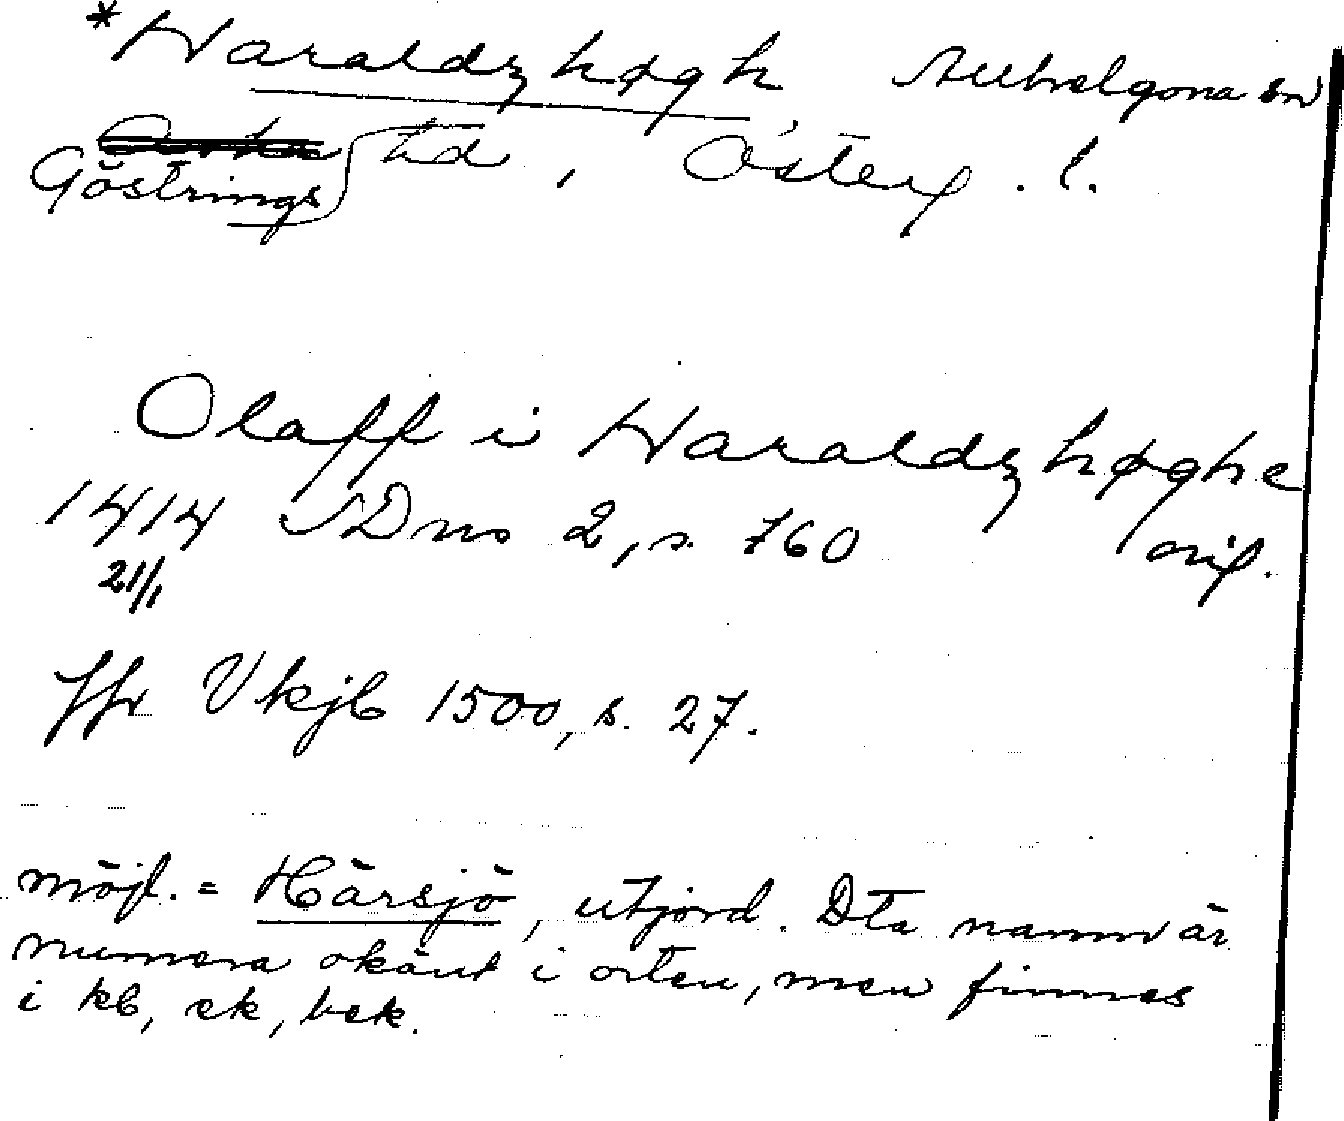 *Haraldzhøgh, Allhelgona sn
Göstrings hd, Österg. l.
Olaff i Haraldzhøghe
1414 SDns 2, s. 760 orig.
21/1
Jfr Vkjb 1500, s. 27.
möjl. = Härsjö, utjord. Dta namn är
numera okänt i orten, men finnes
i kb, ek, bek.